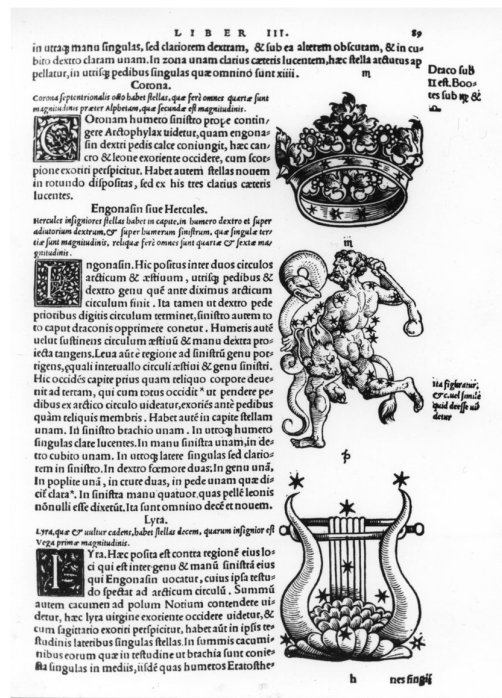 LIBER III. 89
in utraq; manu singulas, sed clariorem dextram, & sub ea alteram obscuram, & in cu-
bito dextro claram unam. In zona unam clarius cæteris lucentem, hæc stella arcturus ap
pellatur, in utrisq; pedibus singulas quæ omnino sunt xiiii.
Draco sub
II est. Boo-
tes sub
Corona.
Corona septentrionalis octo habet stellas, quæ ferè omnes quartæ sunt
magnitudinis præter Alphetam, quæ secundæ est magnitudinis.
COronam humero sinistro prope contin,
gere Arctophylax uidetur, quam engona-
sin dextri pedis calce coniungit, hæc can-
cro & leone exoriente occidere, cum scor-
pione exoriri perspicitur. Habet autem stellas nouem
in rotundo dispositas, sed ex his tres clarius cæteris
lucentes.
Engonasin siue Hercules.
Hercules insigniores stellas habet in capite, in humero dextro et super
adiutorium dextrum, & super humerum sinistrum, quæ singulæ ter-
tiæ sunt magnitudinis, reliquæ ferè omnes sunt quartæ & sextæ ma-
gnitudinis.
ENgonasin. Hic positus inter duos circulos
arcticum & æstiuum, utrisq; pedibus &
dextro genu quê ante diximus arcticum
circulum finit. Ita tamen ut dextro pede
prioribus digitis circulum terminet, sinistro autem to
to caput draconis opprimere conetur. Humeris autê
uelut sustinens circulum æstiuũ & manu dextra pro-
iecta tangens. Leua aũt è regione ad sinistrũ genu por
rigens, equali interuallo circuli æstiui & genu sinistri.
Hic occidês capite prius quam reliquo corpore deue-
nit ad terram, qui cum totus occidit* ut pendere pe-
dibus ex arctico circulo uideatur, exoriês antè pedibus
quàm reliquis membris. Habet autê in capite stellam
unam. In sinistro brachio unam. In utroq; humero
singulas clare lucentes. In manu sinistra unam, in de-
tro cubito unam. In utroq; latere singulas sed clario-
rem in sinistro. In dextro fœmore duas: In genu unã,
In poplite unã, in crure duas, in pede unam quæ di-
cit clara*. In sinistra manu quatuor, quas pellê leonis
nõnulli esse dixerũt. Ita sunt omnino decê et nouem.
ita figuratur,
&c. uel simile
quid deesse ui-
detur
Lyra.
Lyra, quæ & uultur cadens, habet stellas decem, quarum insignior est
Vega primæ magnitudinis.
LYra. Hæc posita est contra regionê eius lo-
ci qui est inter genu & manũ sinistrã eius
qui Engonasin uocatur, cuius ipsa testu-
do spectat ad arcticum circulũ. Summũ
autem cacumen ad polum Notium contendere ui-
detur, hæc lyra uirgine exoriente occidere uidetur, &
cum sagittario exoriri perspicitur, habet aũt in ipsis te-
studinis lateribus singulas stellas. In summis cacumi-
nibus eorum quæ in testudine ut brachia sunt conie-
cta singulas in mediis, iisdê quas humeros Eratosthe-
h nes singit